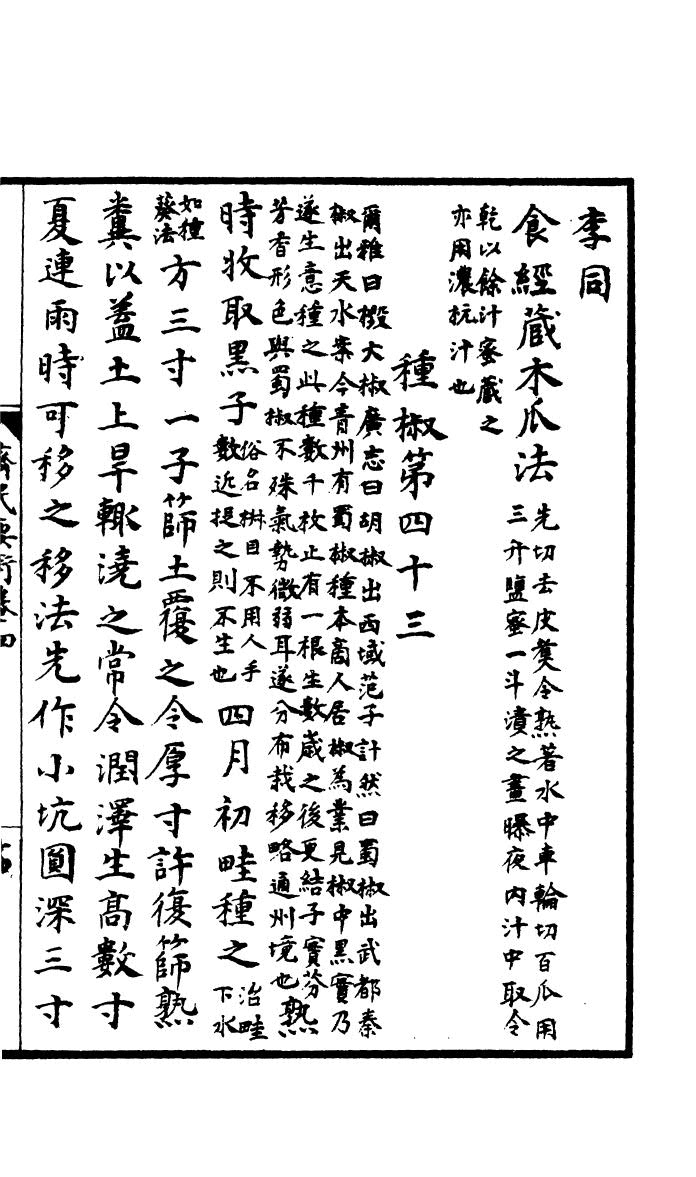 李同
食經藏木𤓰法先切去皮𤎅令熟著水中車輪切百𤓰用
三升鹽蜜一斗漬之晝曝夜内汁中取令
乾以餘汁蜜藏之
亦用濃杬汁也
種椒第四十三
爾雅曰檓大椒廣志曰胡椒出西域范子計然曰蜀椒出武都秦
椒出天水案今青州有蜀椒種本商人居椒為業見椒中黒實乃
遂生意種之此種數千枚止有一根生數歲之後更結子實芬
芳香形色與蜀椒不殊氣勢微弱耳遂分布栽移略通州境也熟
時收取黒子俗名椒目不用人手
數近捉之則不生也四月初畦種之治畦
下水
如種
葵法方三寸一子篩土覆之令厚寸許復篩熟
糞以蓋土上旱輙澆之常令潤澤生高數寸
夏連雨時可移之移法先作小坑圓深三寸
齊民要術卷四